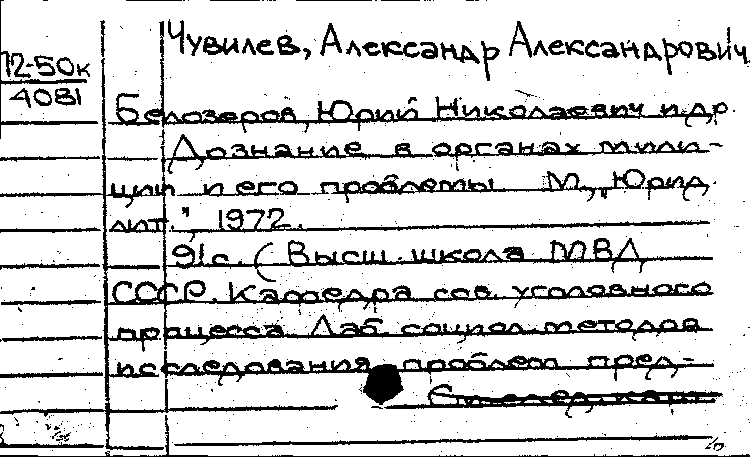 Чувилев, Александр Александрович
72-50к
4081
Белозеров, Юрий Николаевич и др.
Дознание в органах мили-
ции и его проблемы. М., "Юрид.
лит.", 1972.
91с. (Высш. школа МВД
СССР. Кафедра сов. уголовного
процесса. Лаб. социол. методов
исследования проблем пред-
См. след. карт.